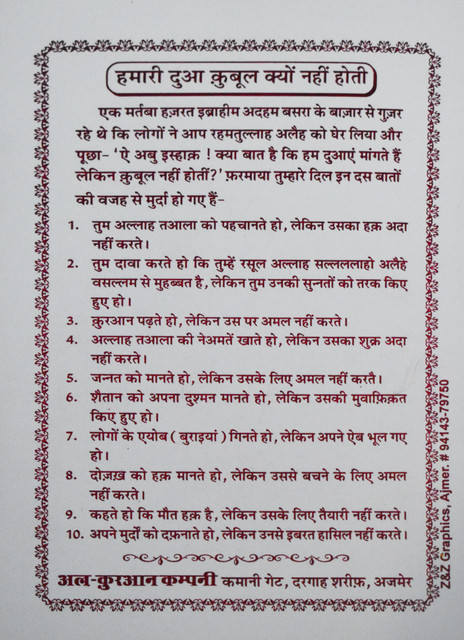 हमारी दुआ क़ुबूल क्यों नहीं होती
एक मर्तबा हज़रत इब्राहीम अदहम बसरा के बाज़ार से गुज़र
रहे थे कि लोगों ने आप रहमतुल्लाह अलैह को घेर लिया और
पूछा- 'ऐ अबु इस्हाक़ ! क्या बात है कि हम दुआएं मांगते हैं
लेकिन क़ुबूल नहीं होतीं?' फ़रमाया तुम्हारे दिल इन दस बातों
की वजह से मुर्दा हो गए हैं-
1. तुम अल्लाह तआला को पहचानते हो, लेकिन उसका हक़ अदा
नहीं करते।
2. तुम दावा करते हो कि तुम्हें रसूल अल्लाह सल्लललाहो अलैहे
वसल्लम से मुहब्बत है, लेकिन तुम उनकी सुन्नतों को तरक किए
हुए हो।
3. क़ुरआन पढ़ते हो, लेकिन उस पर अमल नहीं करते।
4. अल्लाह तआला की नेअमतें खाते हो, लेकिन उसका शुक्र अदा
नहीं करते।
5. जन्नत को मानते हो, लेकिन उसके लिए अमल नहीं करते।
6. शैतान को अपना दुश्मन मानते हो, लेकिन उसकी मुवाफ़िक़त
किए हुए हो।
7. लोगों के एयोब ( बुराइयां ) गिनते हो, लेकिन अपने ऐब भूल गए
हो।
8. दोज़ख़ को हक़ मानते हो, लेकिन उससे बचने के लिए अमल
नहीं करते।
9. कहते हो कि मौत हक़ है, लेकिन उसके लिए तैयारी नहीं करते।
10. अपने मुर्दों को दफ़नाते हो, लेकिन उनसे इबरत हासिल नहीं करते।
अल-क़ुरआन कम्पनी कमानी गेट, दरगाह शरीफ़, अजमेर
Z&Z Graphics, Ajmer. # 94143-79750